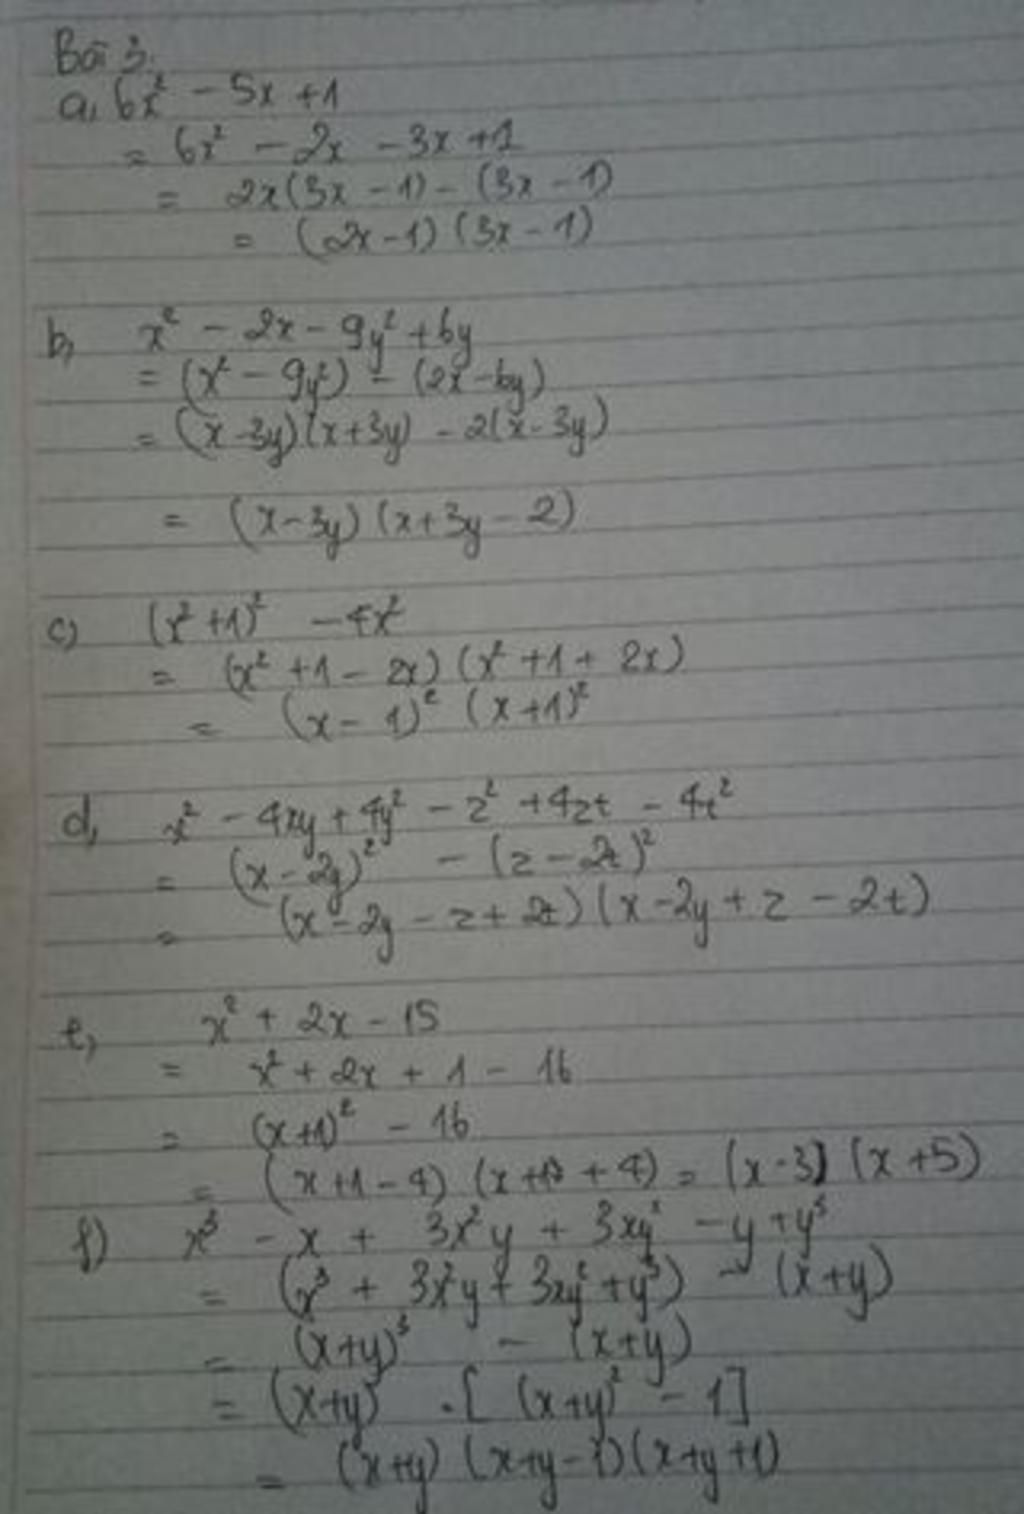 Bài 3.
a, 6x² - 5x + 1
= 6x² - 2x - 3x + 1
= 2x(3x - 1) - (3x - 1)
= (2x - 1) (3x - 1)
b, x² - 2x - 9y² + 6y
= (x² - 9y²) - (2x - 6y)
= (x - 3y)(x + 3y) - 2(x - 3y)
= (x - 3y) (x + 3y - 2)
c) (x² + 1)² - 4x²
= (x² + 1 - 2x) (x² + 1 + 2x)
= (x - 1)² (x + 1)²
d, x² - 4xy + 4y² - z² + 4zt - 4t²
= (x - 2y)² - (z - 2t)²
= (x - 2y - z + 2t) (x - 2y + z - 2t)
e, x² + 2x - 15
= x² + 2x + 1 - 16
= (x + 1)² - 16
= (x + 1 - 4) (x + 1 + 4) = (x - 3) (x + 5)
f) x³ - x + 3x²y + 3xy² - y + y³
= (x³ + 3x²y + 3xy² + y³) - (x + y)
= (x + y)³ - (x + y)
= (x + y) . [ (x + y)² - 1 ]
= (x + y) (x + y - 1) (x + y + 1)